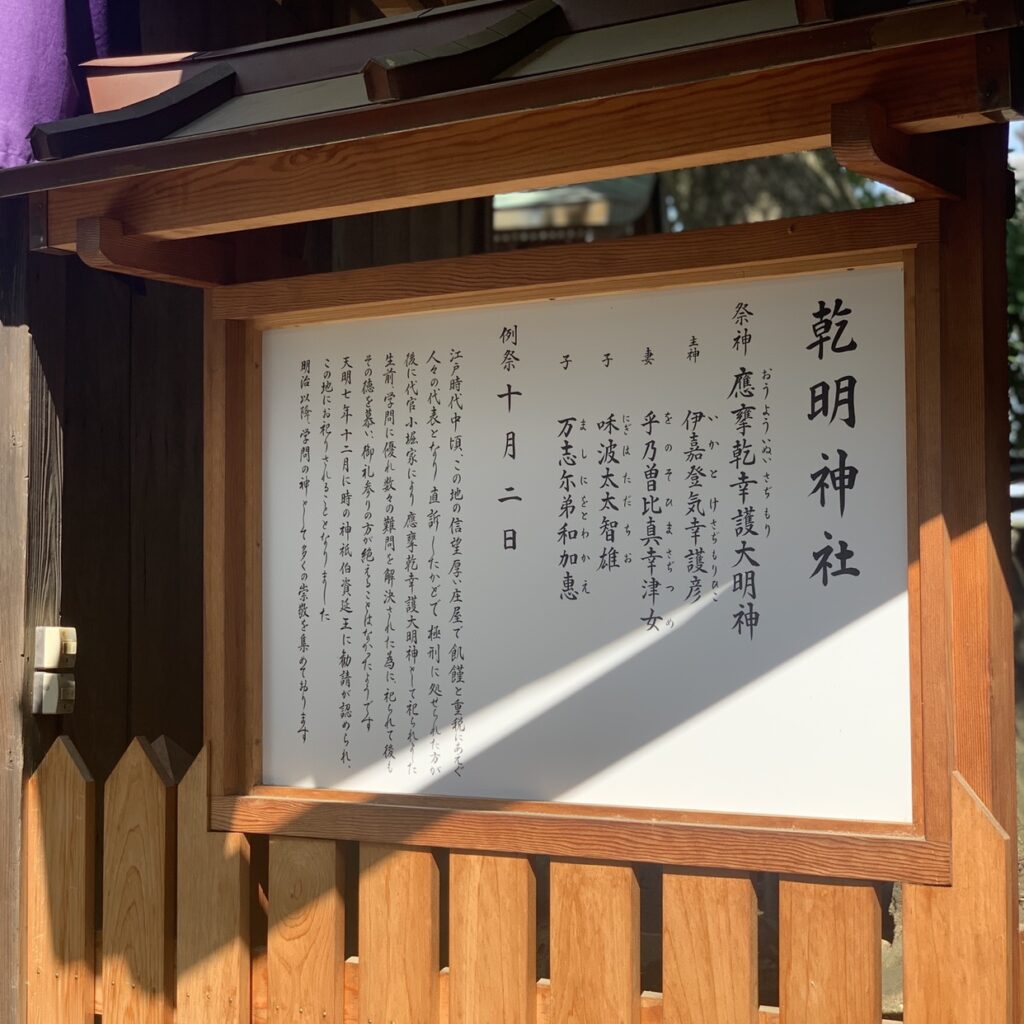 乾明神社
祭神 應擥乾幸護大明神
おうよういぬいさぢもり
主神 伊嘉登気幸護彦
いかとけさぢもりひこ
妻 乎乃曽比真幸津女
をのそひまさぢつめ
子 咊波太太智雄
にぎはただちお
子 万志尓弟和加惠
ましにをとわかえ
例祭 十月二日
江戸時代中頃、この地の信望厚い庄屋で飢饉と重税にあえぐ
人々の代表となり直訴したかどで極刑に処せられた方が
後に代官小堀家により應擥乾幸護大明神として祀られました
生前、学問に優れ数々の難問を解決された為に、祀られて後も
その徳を慕い、御礼参りの方が絶えることはなかったようです
天明七年十二月に時の神祇伯資延王に勧請が認められ、
この地にお祀りされることとなりました
明治以降学問の神として多くの崇敬を集めております